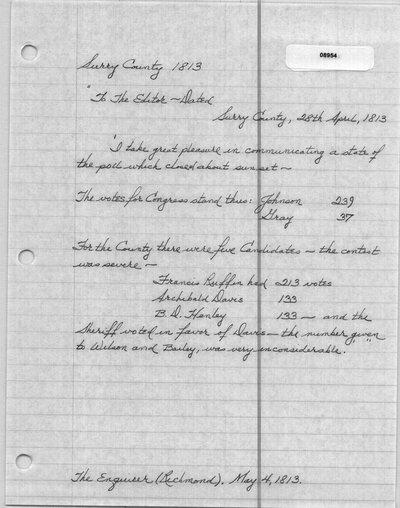 08954
Surry County 1813
"To The Editor — Dated
Surry County, 28th April, 1813
'I take great pleasure in communicating a state of
the poll which closed about sun set —
The votes for Congress stand thus: Johnson 239
Gray 37
For the County there were five Candidates — the contest
was severe —
Francis Ruffin had 213 votes
Archibald Davis 133
B. D. Henley 133 — and the
Sheriff voted in favor of Davis — the number given
to Wilson and Bailey, was very inconsiderable.'"
The Enquirer (Richmond). May 4, 1813.